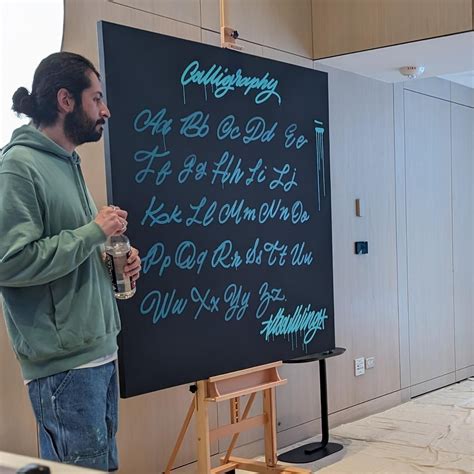 Calligraphy
Aa Bb Cc Dd Ee
Ff Gg Hh Ii Jj
Kk Ll Mm Nn o
Pp Qq Rr Ss Tt Uu
Ww Xx Yy Zz